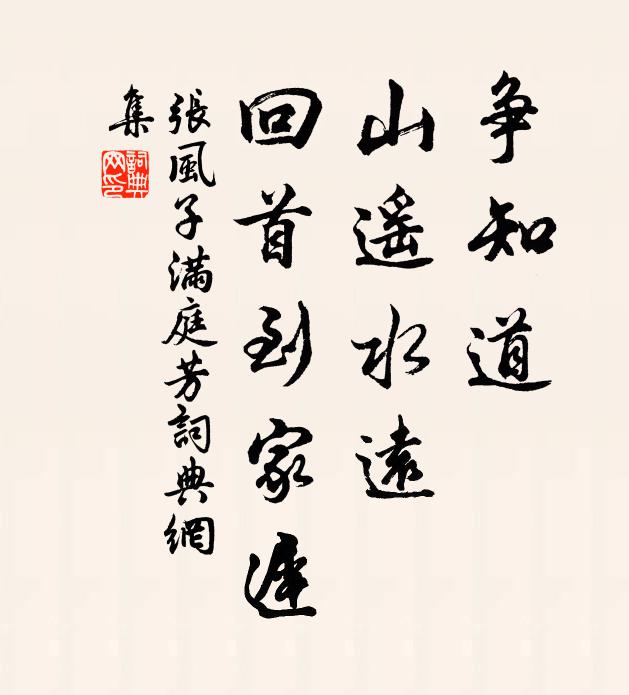 争知道
山遥水遠
回首到家遅
張風子滿庭芳詞典網
集
詞典網印